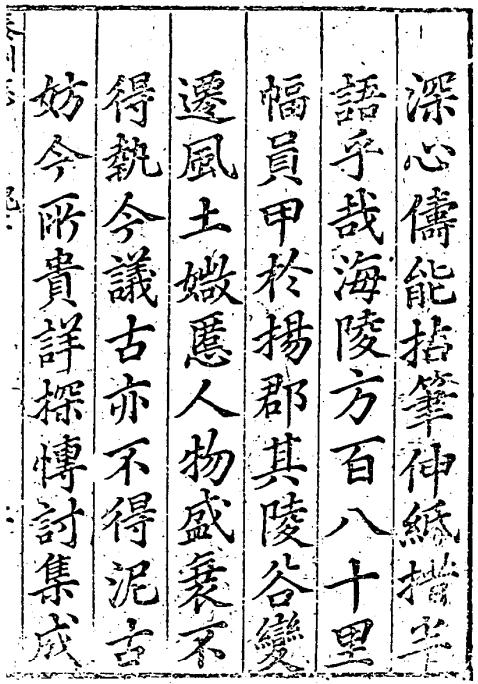 深心儔能拈筆伸紙措半
語乎哉海陵方百八十里
幅員甲於揚郡其陵谷變
遷風土媺慝人物盛衰不
得執今議古亦不得泥古
妨今所貴詳探慱討集成